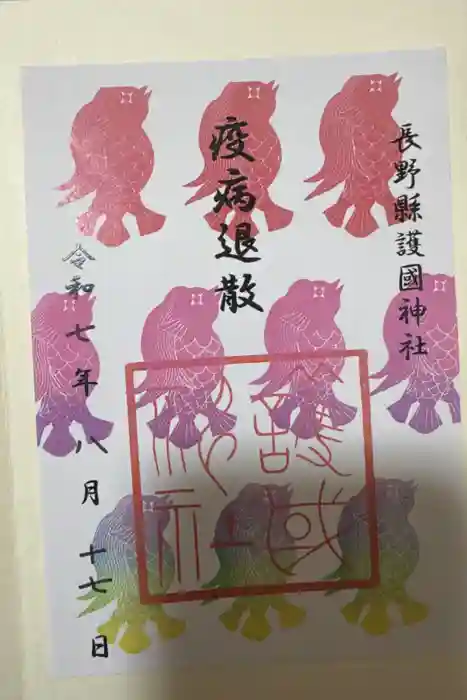 長野縣護國神社
疫病退散
令和七年八月十七日
護国
神社